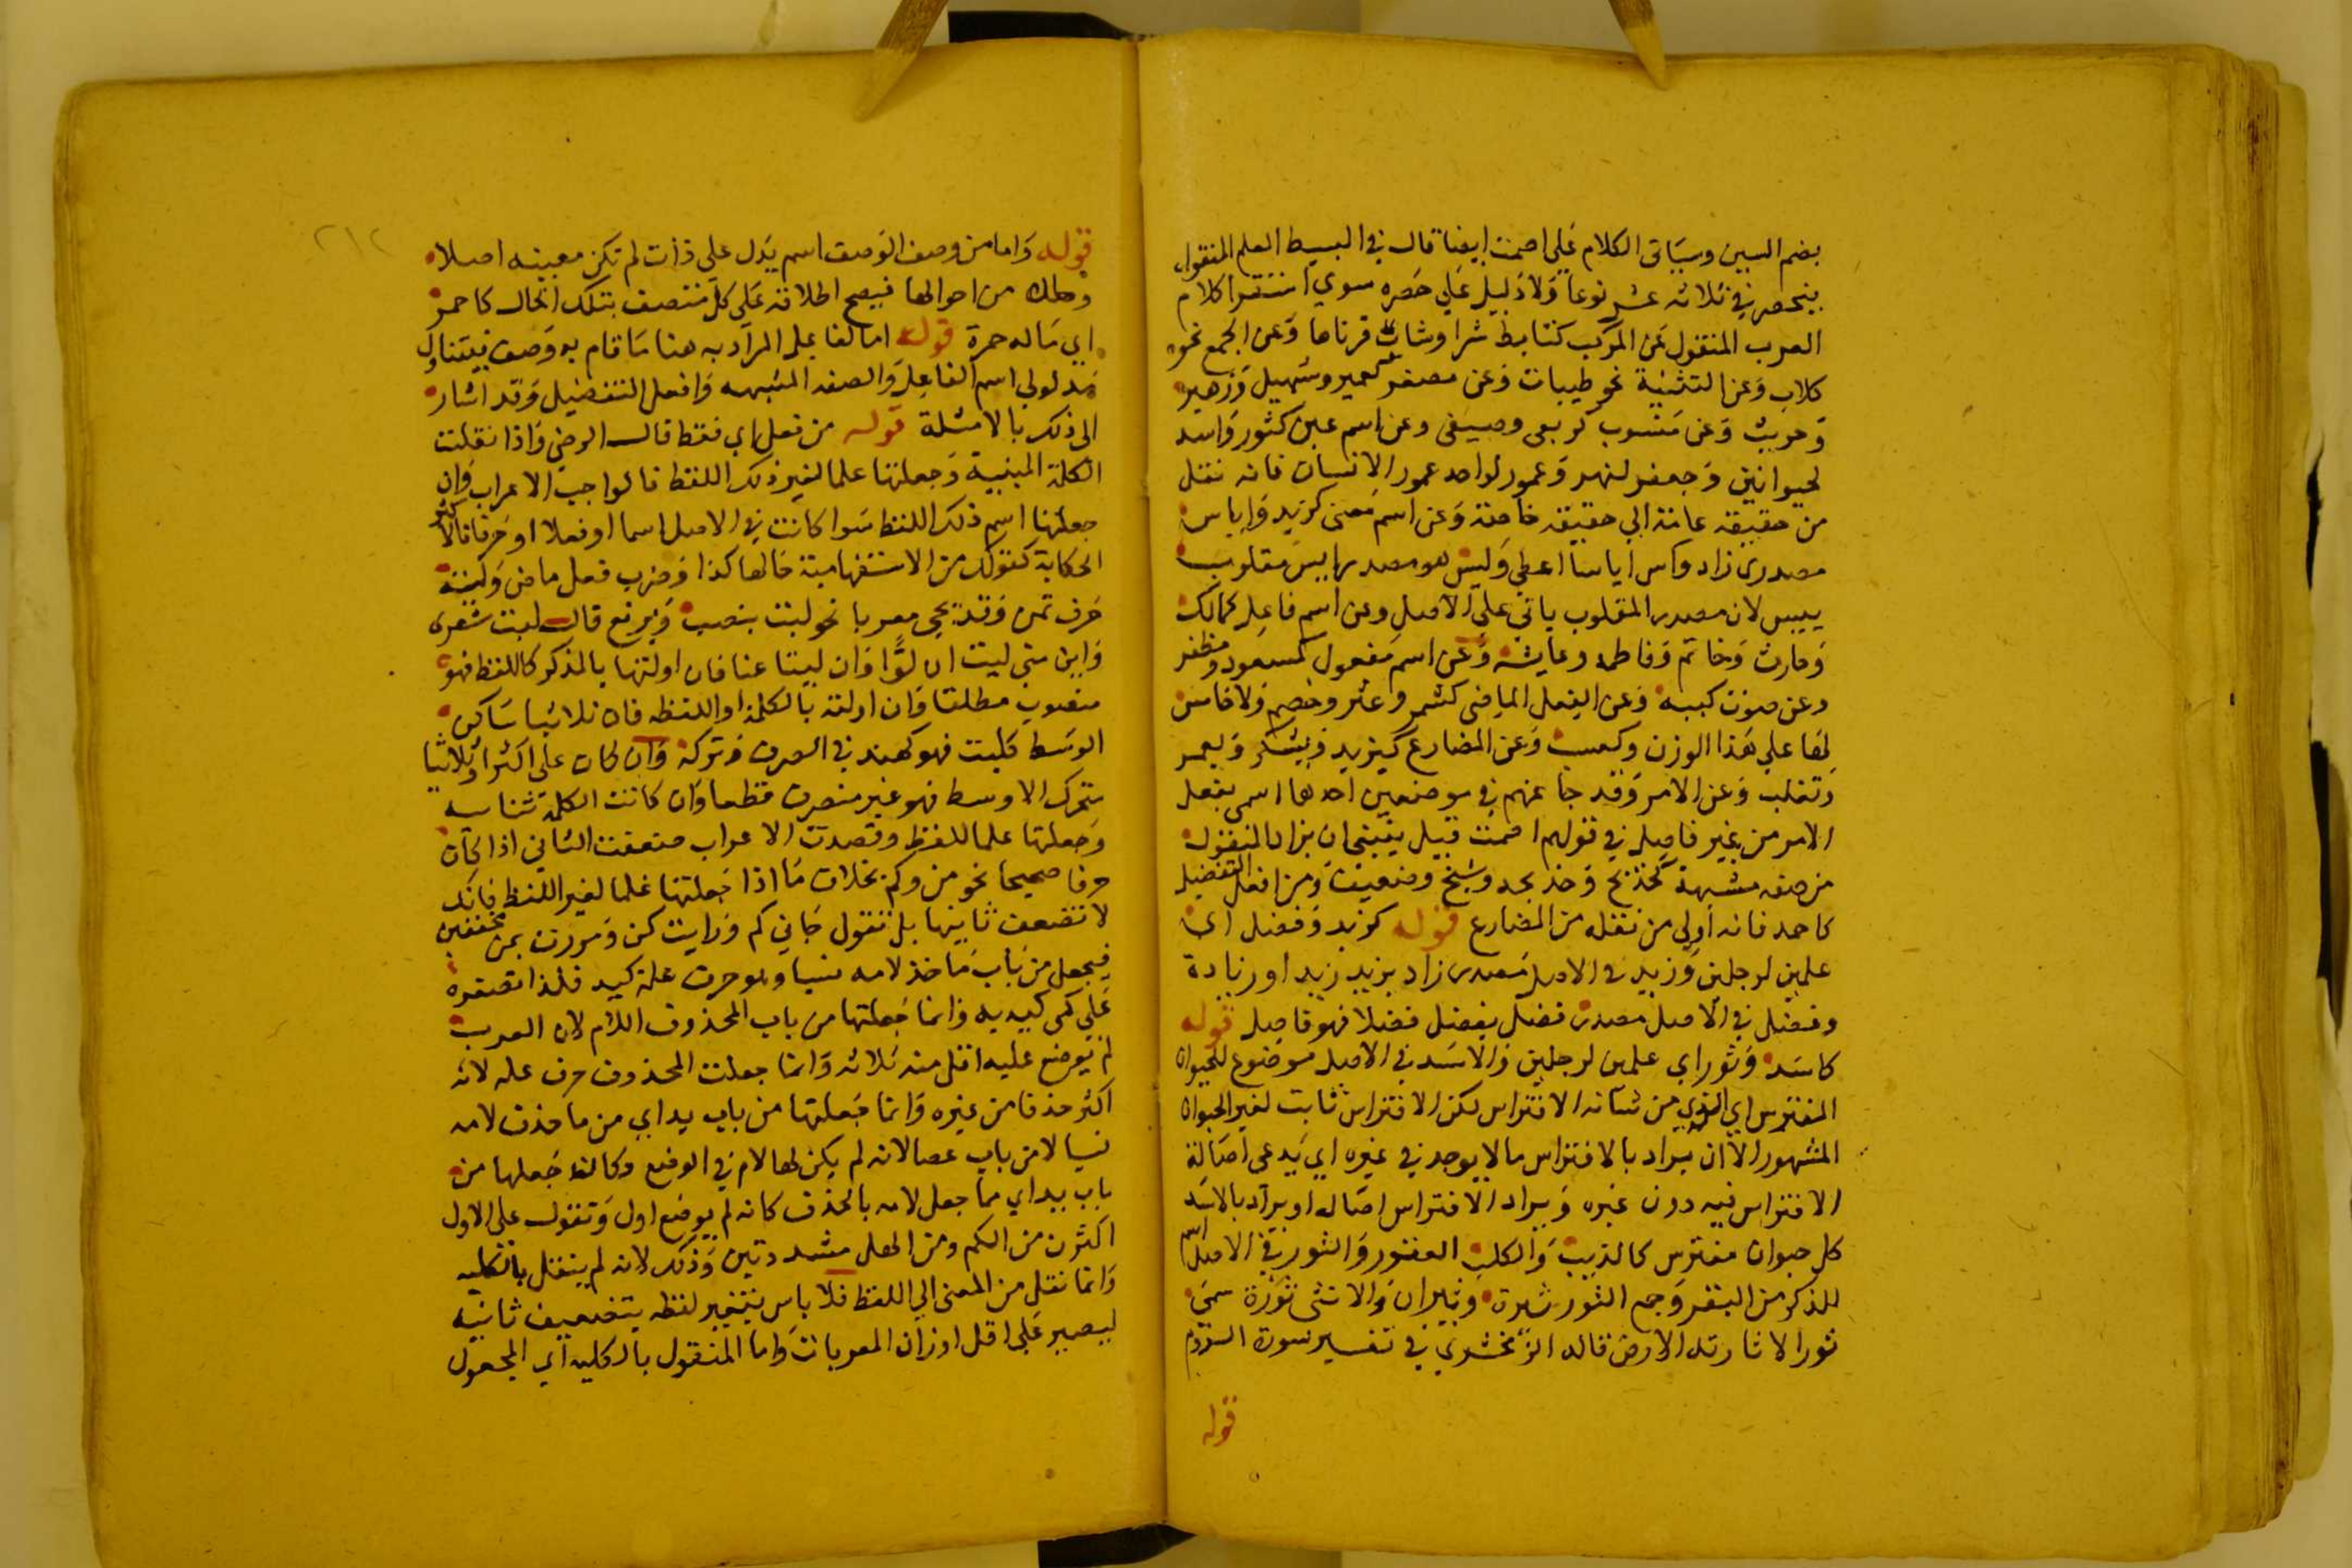 بضم السين وسيأتى الكلام على اصمت ايضا قال في البسيط العلم المنقول
ينحصر في ثلاثه عشر نوعا ولا دليل على حصره سوي استقرا كلام
العرب المنقول عن المركب كتابط شرا وشاب قرناها وعن الجمع نحو
كلاب وعن التثنية نحو طيبات وعن مصغر كعمير وسهيل وزهير
وحريث وعن منسوب كربعى وصيفى وعن اسم عين كثور واسد
لحيوانين وجعفر لنهر وعمور لواحد عمور الانسان فانه نقل
من حقيقه عامة الي حقيقه خاصة وعن اسم معنى كزيد واياس
مصدرى زاد واس اياسا اعطي وليس هو مصدر ايس مقلوب
ييس لان مصدر المقلوب ياتي على الاصل وعن اسم فاعل كمالك
وحارث وحاتم وفاطمه وعايشه وعن اسم مفعول كمسعود ومظفر
وعن صوت كببه وعن الفعل الماضى كشمر وعثر وخصم ولا خامس
لها علي هذا الوزن وكعسب وعن المضارع كيزيد ويشكر ويعمر
وتغلب وعن الامر وقد جا عنهم في موضعين احدهما اسمى بفعل
الامر من غير فاعل في قولهم اصمت قيل ينبغي ان يزاد المنقول
من صفه مشبهة كخديج وخديجه وشيخ وضعيف ومن افعل التفضيل
كاحمد فانه اولى من نقله من المضارع قوله كزيد وفضل اى
علمين لرجلين وزيد في الاصل مصدر زاد يزيد زيدا وزيادة
وفضل في الاصل مصدر فضل يفضل فضلا فهو فاضل قوله
كاسد وثور اي علمين لرجلين والاسد في الاصل موضوع للحيوان
المفترس اي الذي من شانه الافتراس لكن الافتراس ثابت لغير الحيوان
المشهور الا ان يراد بالافتراس مالا يوجد في غيره اي يدعى اصالة
الافتراس فيه دون غيره ويراد الافتراس اصاله او يراد بالاسد
كل حيوان مفترس كالذيب والكلب العقور والثور في الاصل اسم
للذكر من البقر وجمع الثور ثيرة وثيران والانثى ثورة سمى
ثورا لاثارته الارض قاله الزمخشري في تفسير سورة الروم
قوله
٢١٢
قوله واما من وصف الوصف اسم يدل علي ذات لم تكن معينه اصلا
من احوالها فيصح اطلاقه على كل متصف بتلك الحال كاحمر
اي ماله حمرة قوله اما لفاعل المراد به هنا ما قام به وصف فيتناول
مدلولي اسم الفاعل والصفه المشبهه وافعل التفضيل وقد اشار
الى ذلك بالامثلة قوله من فعل اي فقط قال الرضي واذا نقلت
الكلمة المبنية وجعلتها علما لغير ذلك اللفظ فالواجب الاعراب وان
جعلتها اسم ذلك اللفظ سوا كانت في الاصل اسما او فعلا او حرفا فالاكثر
الحكاية كقولك من الاستفهامية حالها كذا وضرب فعل ماض وليت
حرف تمن وقد يجى معربا نحو ليت ينصب ويرفع قال ليت شعرى
واين منى ليت ان لوا وان ليتا عنا فان اولتها بالمذكر كاللفظ فهو
منصوب مطلقا وان اولته بالكلمة او اللفظه فان ثلاثيا ساكن
الوسط كليت فهو كهند في الصرف وتركه وان كان على اكثر او ثلاثيا
متحرك الاوسط فهو غير منصرف قطعا وان كانت الكلمة ثنائيه
وجعلتها علما للفظ وقصدت الاعراب ضعفت الثاني اذا كان
حرفا صحيحا نحو من وكم بخلاف ما اذا جعلتها علما لغير اللفظ فانك
لا تضعف ثانيها بل تقول جاني كم ورايت كن ومررت بمن مخففين
فيجعل من باب ما حذف لامه نسيا وهو حرف علة كيد فلذا تصغره
على كمى كيديه وانما جعلتها من باب المحذوف اللام لان العرب
لم يوضع عليه اقل منه ثلاثه وانما جعلت المحذوف حرف عله لانه
اكثر حذفا من غيره وانما جعلتها من باب يد اي من ما حذف لامه
نسيا لا من باب عصا لانه لم يكن لها لام في الوضع وكالفظ جعلها من
باب يد اي مما جعل لامه بالحذف كانه لم يوضع اول وتقول على الاول
اكثرن من الكم ومن الهل مشددتين وذلك لانه لم ينقل بالكليه
وانما نقل من المعنى الي اللفظ فلا باس بتغير لفظه بتضعيف ثانيه
ليصير على اقل اوزان المعربات واما المنقول بالكليه اي المجعول